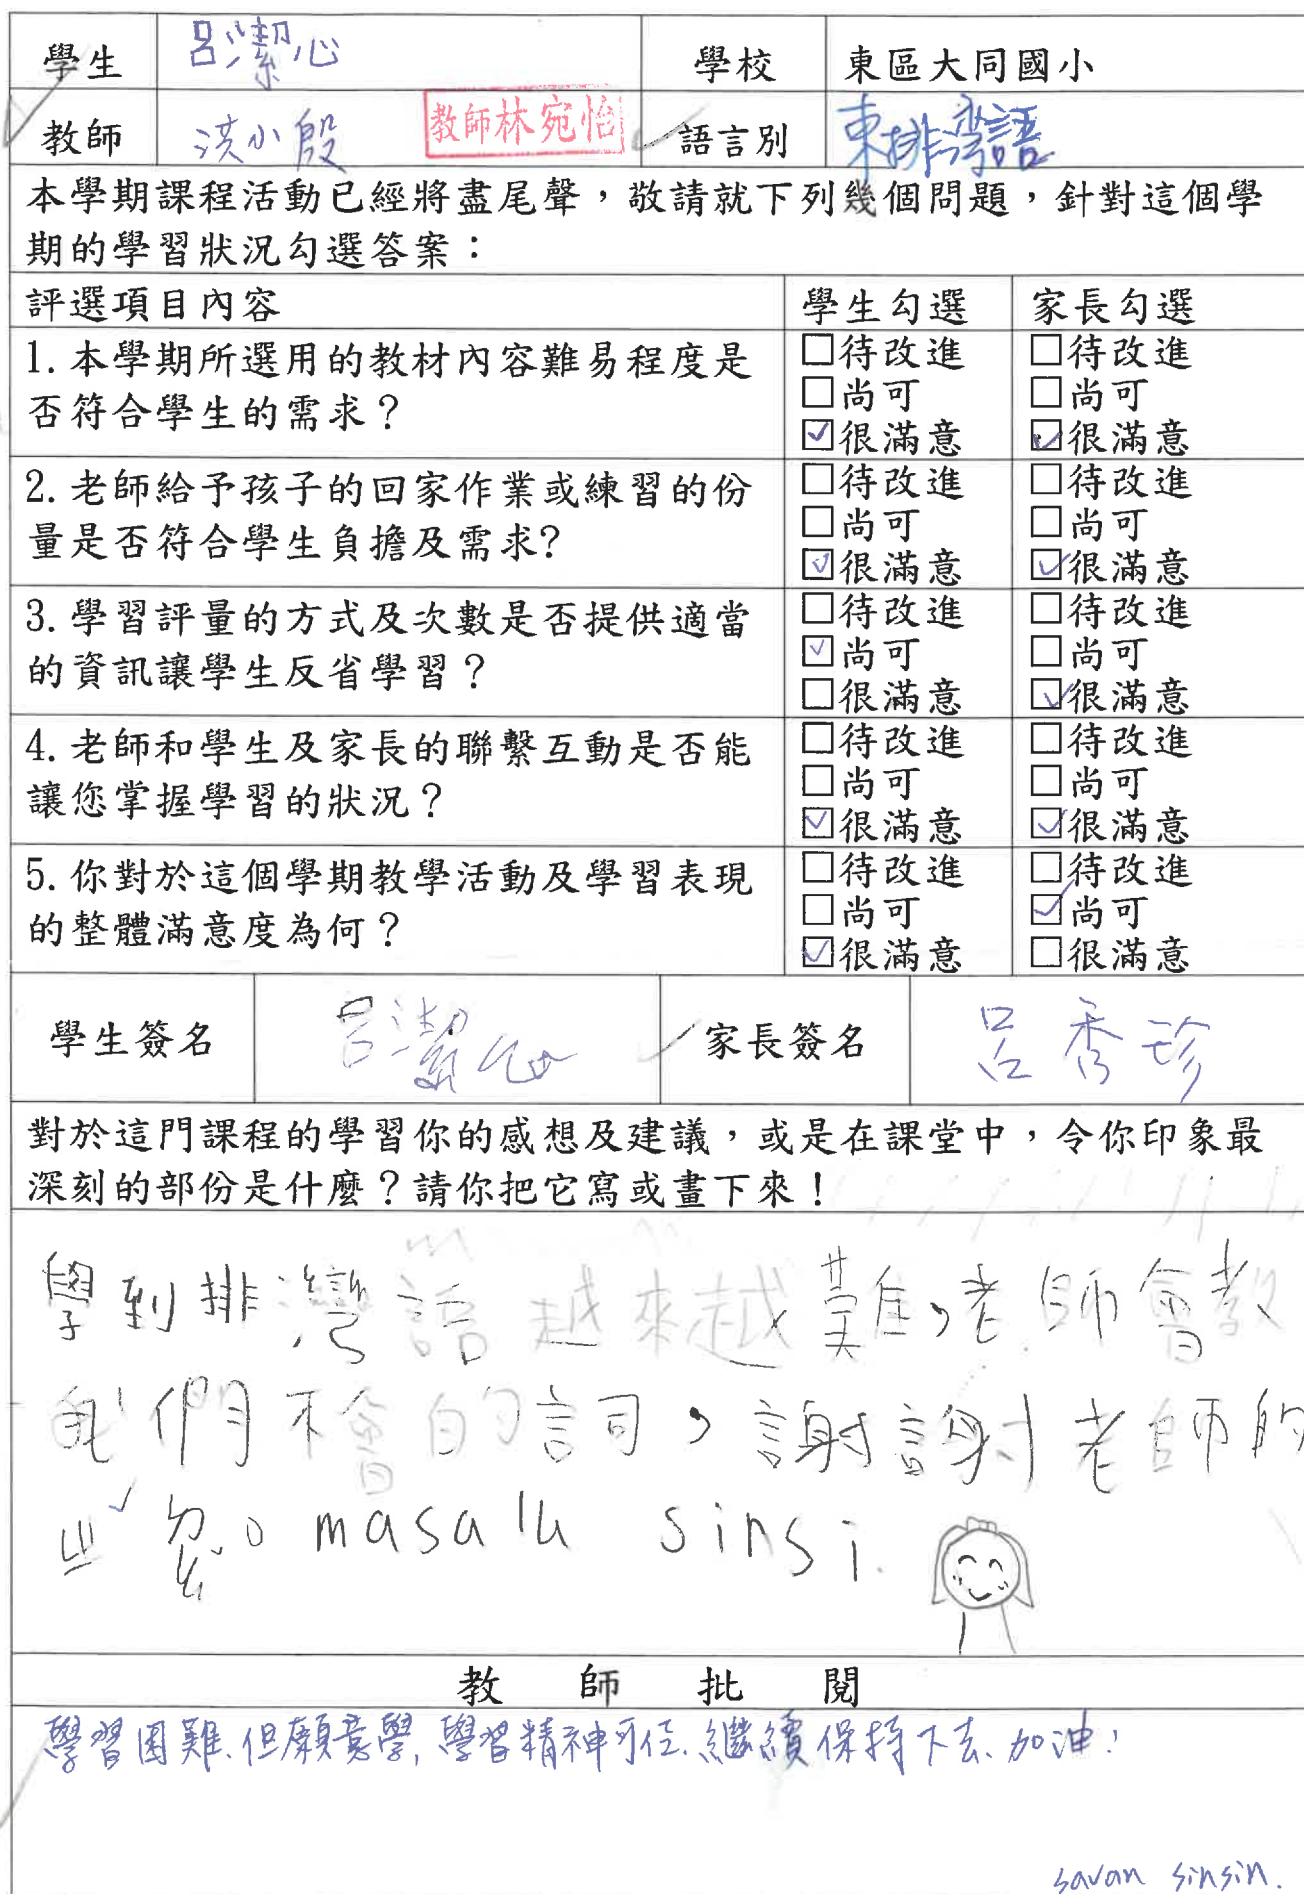 學生 呂潔心 學校 東區大同國小
教師 洪小殷 教師林宛怡 語言別 東排灣語
本學期課程活動已經將盡尾聲，敬請就下列幾個問題，針對這個學
期的學習狀況勾選答案：
評選項目內容 學生勾選 家長勾選
1.本學期所選用的教材內容難易程度是
否符合學生的需求？
□待改進 □待改進
□尚可 □尚可
☑很滿意 ☑很滿意
2.老師給予孩子的回家作業或練習的份
量是否符合學生負擔及需求?
□待改進 □待改進
□尚可 □尚可
☑很滿意 ☑很滿意
3.學習評量的方式及次數是否提供適當
的資訊讓學生反省學習？
□待改進 □待改進
☑尚可 □尚可
□很滿意 ☑很滿意
4.老師和學生及家長的聯繫互動是否能
讓您掌握學習的狀況？
□待改進 □待改進
□尚可 □尚可
☑很滿意 ☑很滿意
5.你對於這個學期教學活動及學習表現
的整體滿意度為何？
□待改進 □待改進
□尚可 ☑尚可
☑很滿意 □很滿意
學生簽名 呂潔心 家長簽名 呂秀珍
對於這門課程的學習你的感想及建議，或是在課堂中，令你印象最
深刻的部份是什麼？請你把它寫或畫下來！
學到排灣語越來越難，老師會教
我們不會的詞，謝謝老師的
ㄐㄧㄠˋ ㄉㄠˇ。masalu sinsi.
教師批閱
學習困難、但願意學,學習精神可佳、繼續保持下去、加油!
savan sinsin.